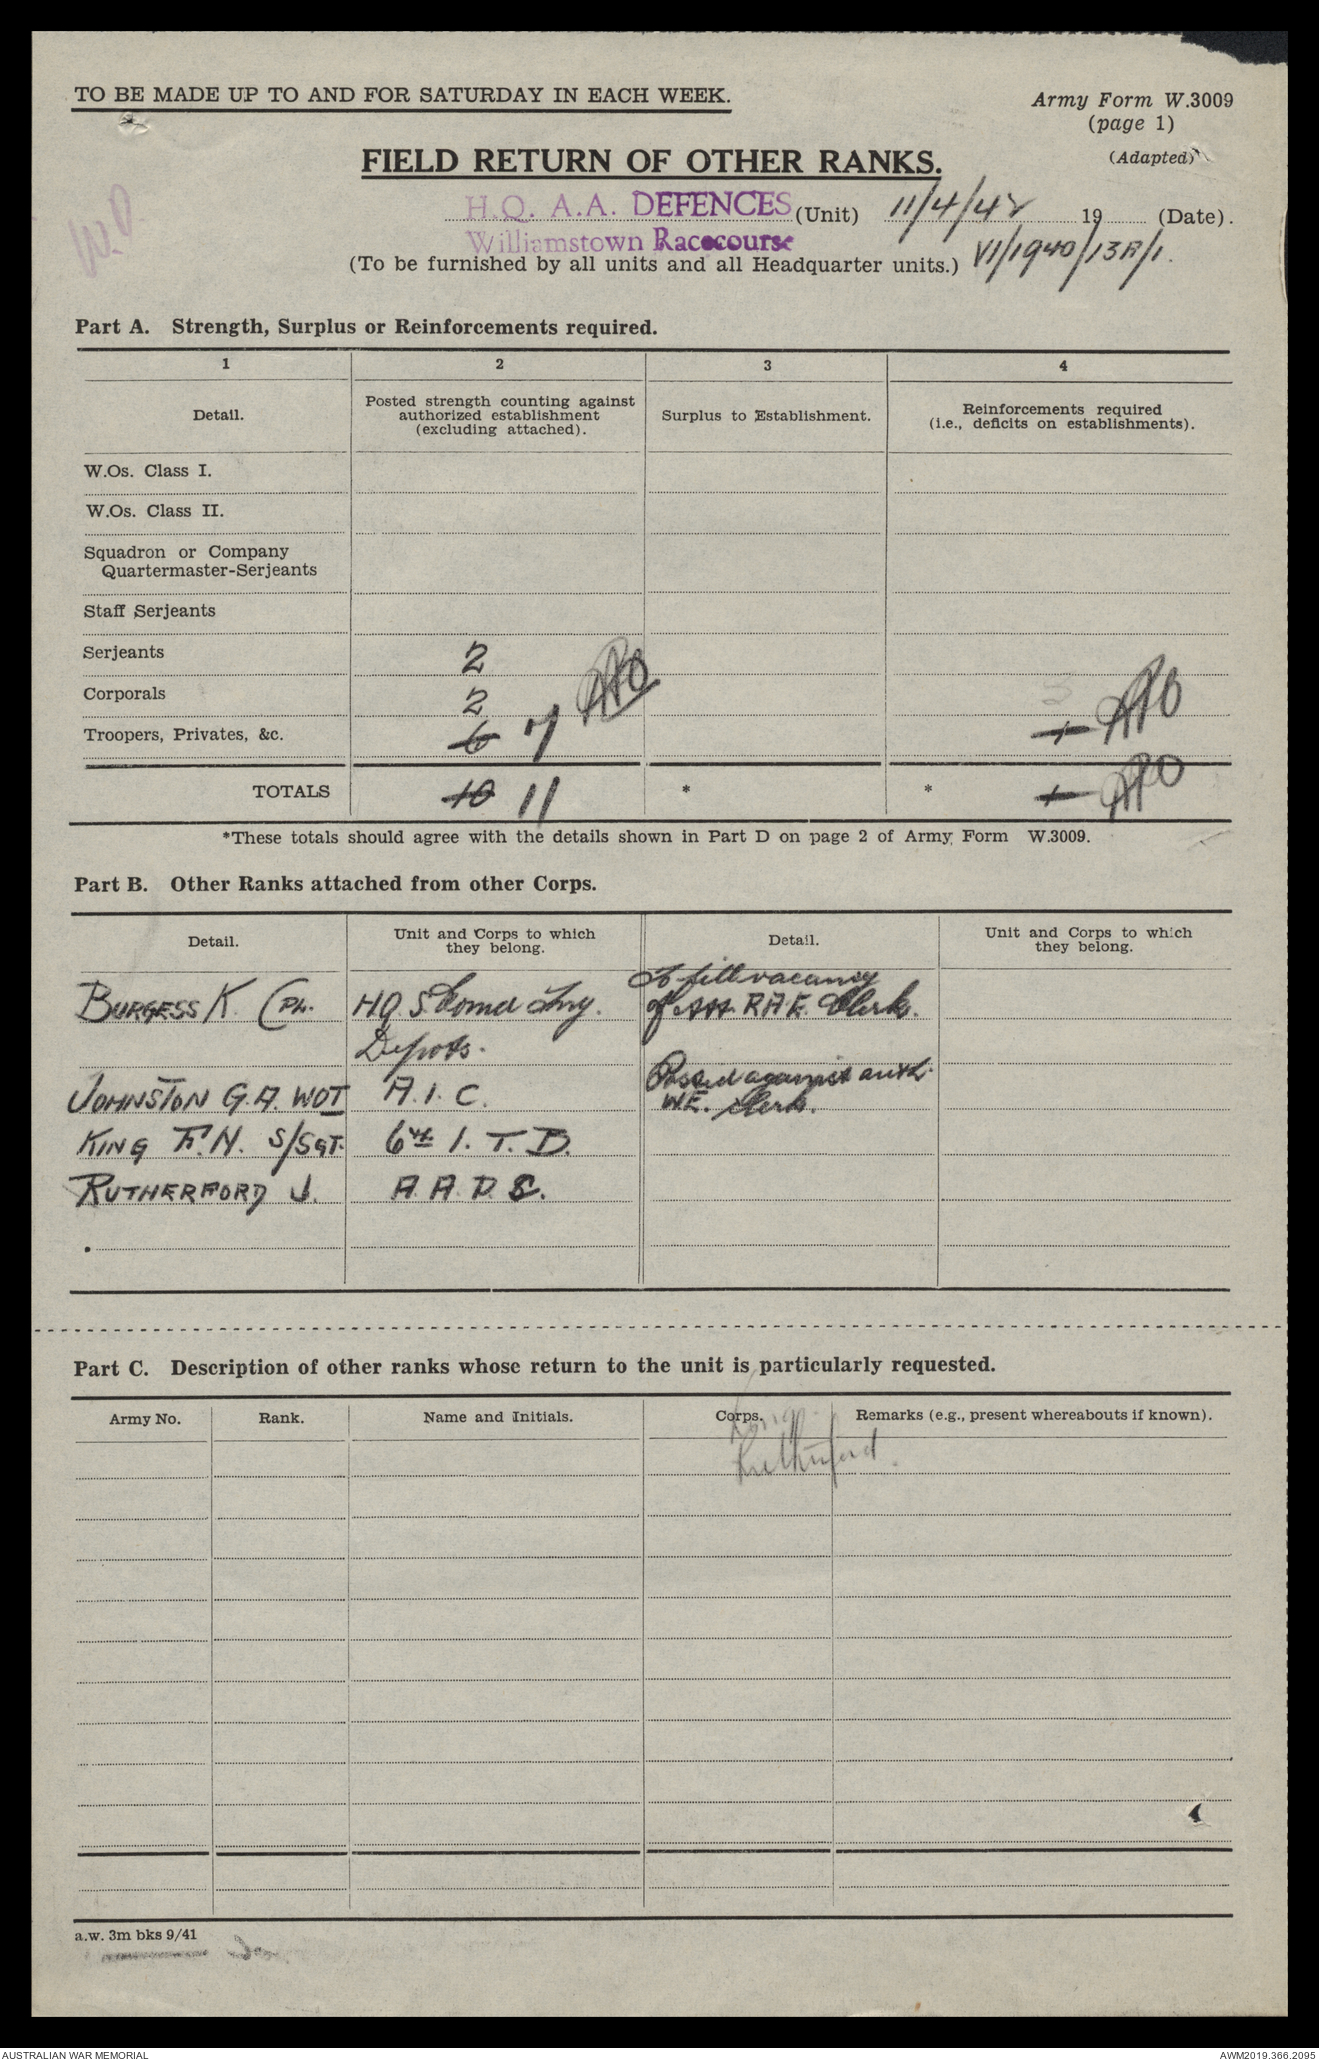 TO BE MADE UP TO AND FOR SATURDAY IN EACH WEEK.
Army Form W.3009
(page 1)
(Adapted)
FIELD RETURN OF OTHER RANKS.
W.D.
H.Q. A.A. DEFENCES (Unit) 11/4/42 19 (Date).
Williamstown Racecourse
VI/1940/13A/1.
(To be furnished by all units and all Headquarter units.)
Part A. Strength, Surplus or Reinforcements required.
1 2 3 4
Detail.
Posted strength counting against authorized establishment (excluding attached).
Surplus to Establishment.
Reinforcements required (i.e., deficits on establishments).
W.Os. Class I.
W.Os. Class II.
Squadron or Company
Quartermaster-Serjeants
Staff Serjeants
Serjeants 2
Corporals 2
Troopers, Privates, &c. 6 7 1
TOTALS 10 11 * * 1
*These totals should agree with the details shown in Part D on page 2 of Army Form W.3009.
Part B. Other Ranks attached from other Corps.
Detail.
Unit and Corps to which they belong.
Detail.
Unit and Corps to which they belong.
BURGESS K. CPL. H.Q. S. Comd Trg. Depots.
To fill vacancy
of Att. R.A.E. Clerk.
JOHNSTON G.A. WOI A.I.C.
Posted against auth.
W.E. Clerk.
KING F.N. S/SGT. 6th I.T.B.
RUTHERFORD J. A.A.D.C.
Part C. Description of other ranks whose return to the unit is particularly requested.
Army No. Rank. Name and Initials. Corps. Remarks (e.g., present whereabouts if known).
King
Rutherford.
a.w. 3m bks 9/41
AUSTRALIAN WAR MEMORIAL
AWM2019.366.2095